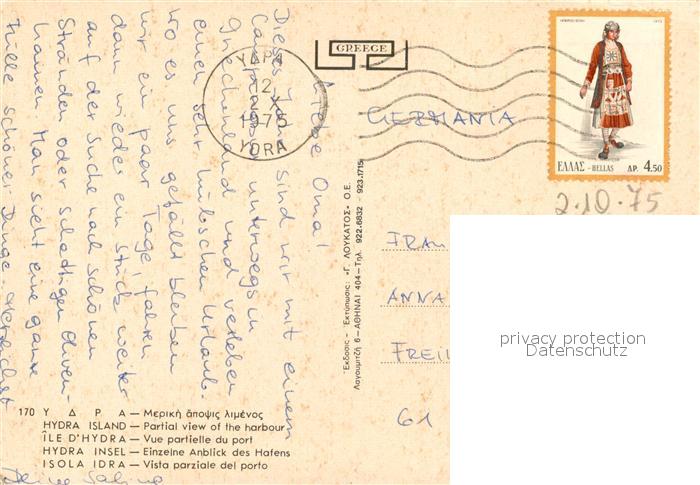 Liebe Oma!
Dieses Jahr sind wir mit einem
Campingbus unterwegs in
Griechenland und verleben
einen sehr hübschen Urlaub.
Wo es uns gefällt bleiben
wir ein paar Tage, fahren
dann wieder ein Stück weiter
auf der Suche nach schönen
Stränden oder schattigen Oliven-
hainen. Man sieht eine ganze
Fülle schöner Dinge.
Deine Sabine
GREECE
ΥΔΡΑ
12
197
YDRA
1973
ΕΛΛΑΣ - HELLAS ΔΡ. 4.50
GERMANIA
2.10.75
FRAU
ANNA
FREI
61
Ἔκδοσις - Ἐκτύπωσις: «Γ. ΛΟΥΚΑΤΟΣ» Ο.Ε.
Λαγουμιτζῆ 6 - ΑΘΗΝΑΙ 404 - Τηλ. 922.6832 - 923.1715
privacy protection
Datenschutz
170 Υ Δ Ρ Α — Μερικὴ ἄποψις λιμένος
HYDRA ISLAND — Partial view of the harbour
ÎLE D'HYDRA — Vue partielle du port
HYDRA INSEL — Einzelne Anblick des Hafens
ISOLA IDRA — Vista parziale del porto